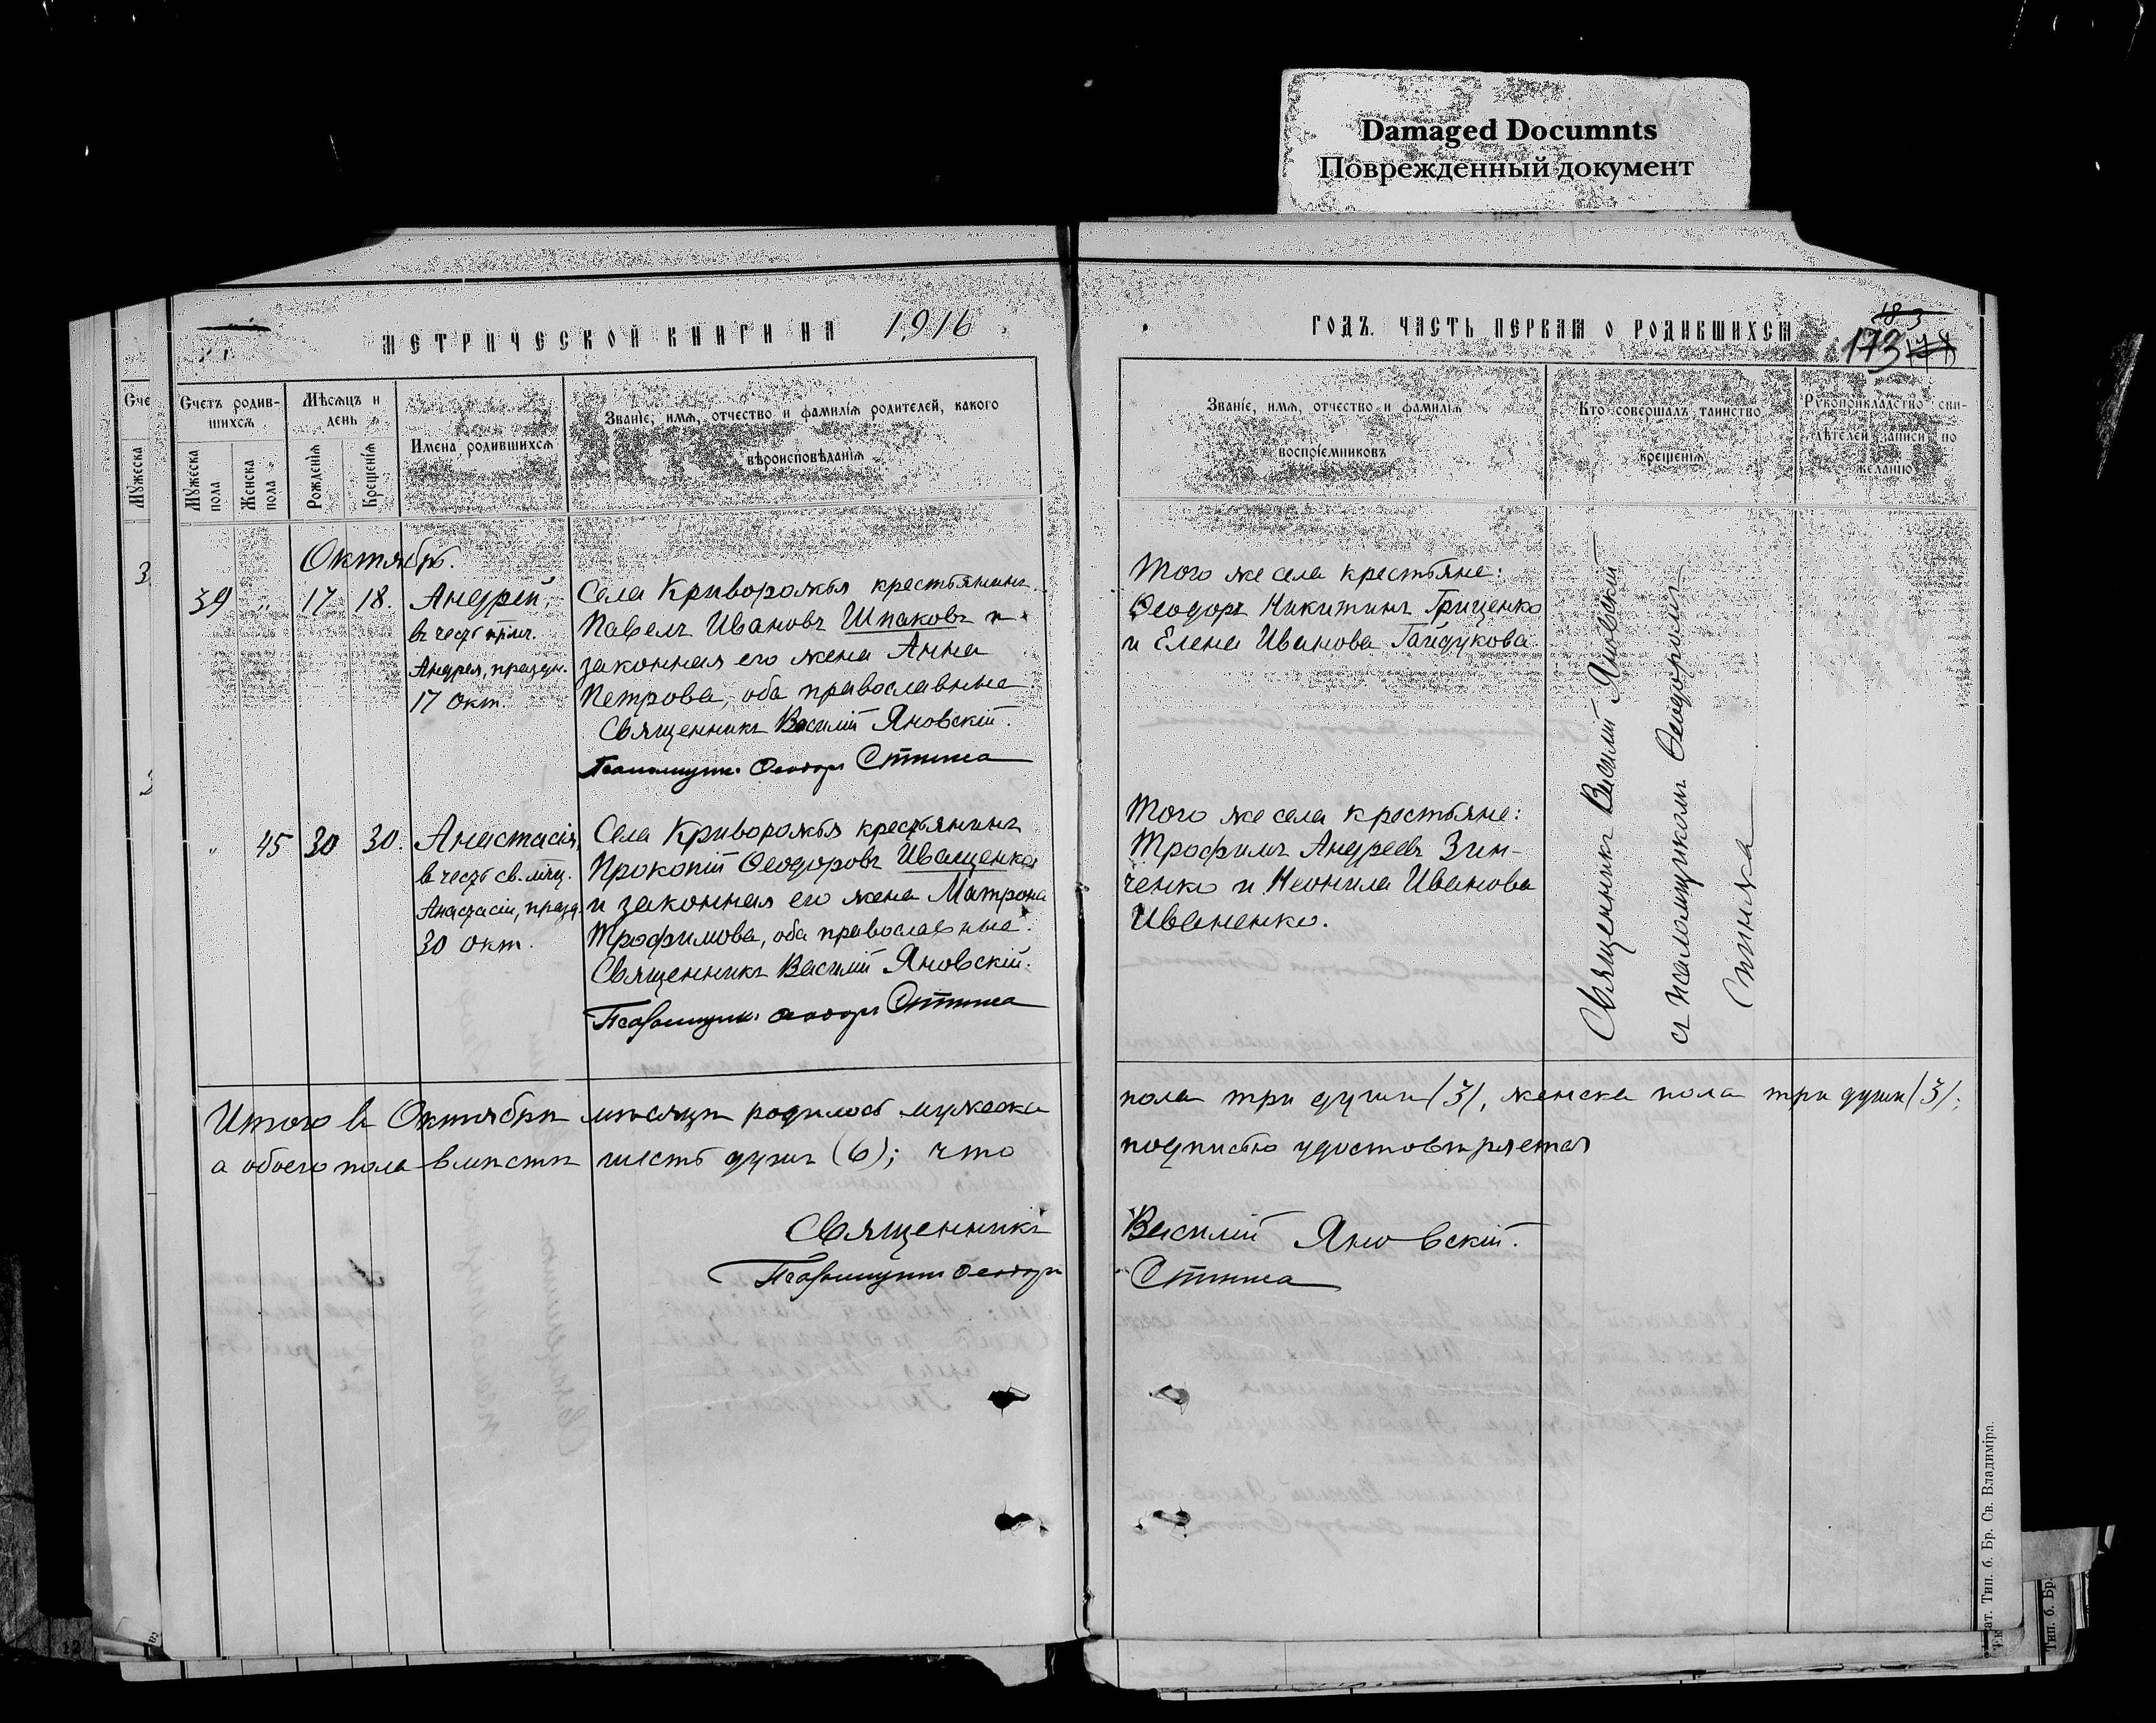 Damaged Documnts
Поврежденный документ
МЕТРИЧЕСКОЙ КНИГИ НА 1916
ГОДЪ. ЧАСТЬ ПЕРВАЯ О РОДИВШИХСЯ
183
173
Сче
Мужеска
Счетъ родив-
шихся
Мѣсяцъ и
день
Мужеска
пола
Женска
пола
Рожденія
Крещенія
Имена родившихся
Званіе, имя, отчество и фамилія родителей, какого
вѣроисповѣданія
Званіе, имя, отчество и фамилія
воспріемниковъ
Кто совершалъ таинство
крещенія
Рукоприкладство сви-
дѣтелей записи по
желанію
Октябрь.
39 " 17 18.
Андрей,
въ честь прпм.
Андрея, праздн.
17 Окт.
Села Криворожья крестьянинъ
Павелъ Ивановъ Шпаковъ и
законная его жена Анна
Петрова, оба православные
Священникъ Василій Яновскій.
Псаломщикъ Ѳеодоръ
Того же села крестьяне:
Ѳеодоръ Никитинъ Гриценко
и Елена Иванова Гайдукова
Священникъ Василій Яновскій
съ псаломщикомъ Ѳеодоромъ
" 45 30 30.
Анастасія,
въ честь св. мчц.
Анастасіи, празд.
30 окт.
Села Криворожья крестьянинъ
Прокопій Ѳеодоровъ Иващенко
и законная его жена Матрона
Трофимова, оба православные.
Священникъ Василій Яновскій.
Псаломщикъ Ѳеодоръ
Того же села крестьяне:
Трофимъ Андреевъ Зин-
ченко и Неонила Иванова
Иваненко.
Итого въ Октябрѣ мѣсяцѣ родилось мужеска
пола три души (3), женска пола три души (3);
а обоего пола вмѣстѣ шесть душъ (6); что
подписью удостовѣряется
Священникъ Василій Яновскій.
Псаломщикъ Ѳеодоръ
ат. Тип. б. Бр. Св. Владиміра.
Тип. б. Бр.
12